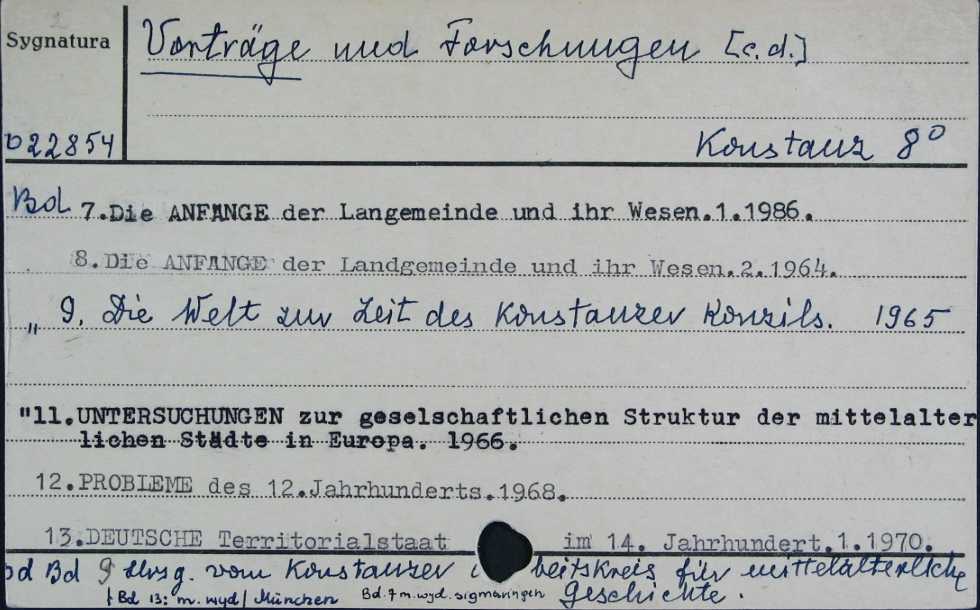 Sygnatura
Vorträge und Forschungen [c.d.]
D22854
Konstanz 8°
Bd 7.Die ANFÄNGE der Langemeinde und ihr Wesen.1.1986.
8.Die ANFÄNGE der Landgemeinde und ihr Wesen.2.1964.
„ 9. Die Welt zur Zeit des Konstanzer Konzils. 1965
"11.UNTERSUCHUNGEN zur geselschaftlichen Struktur der mittelalter
lichen Städte in Europa. 1966.
12.PROBLEME des 12.Jahrhunderts.1968.
13.DEUTSCHE Territorialstaat im 14. Jahrhundert.1.1970.
od Bd 9 Hrsg. vom Konstanzer beitskreis für mittelalterliche
Bd 13: m. wyd/ München Bd. 7 m. wyd. Sigmaringen Geschichte.